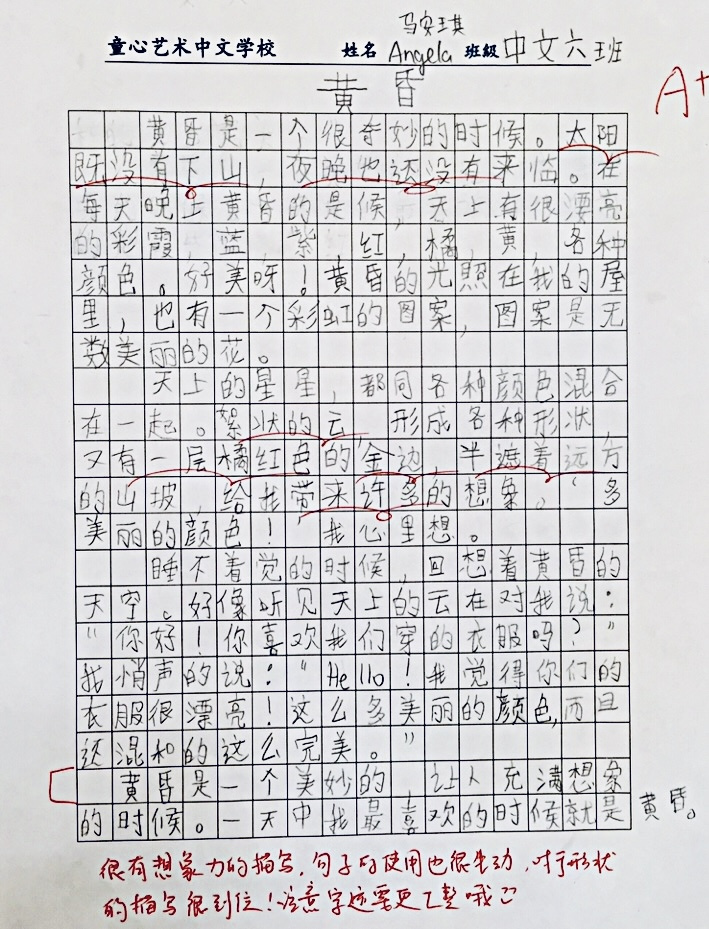 马安琪
童心艺术中文学校 姓名 Angela 班级 中文六班
A+
黄昏
黄昏是一个很奇妙的时候。太阳
既没有下山，夜晚也还没有来临。在
每天晚上黄昏的是候，天上有很漂亮
的彩霞，蓝，紫，红，橘，黄，各种
颜色。好美呀！黄昏的光照在我的屋
里，也有一个彩虹的图案，图案是无
数美丽的花。
天上的星星，都同各种颜色混合
在一起。絮状的云，形成各种形状，
又有一层橘红色的金边，半遮着远方
的山坡，给我带来许多的想象。“多
美丽的颜色！”我心里想。
睡不着觉的时候，回想着黄昏的
天空。好像听见天上的云在对我说：
“你好！你喜欢我们穿的衣服吗？”
我悄声的说：“Hello！我觉得你们的
衣服很漂亮！这么多美丽的颜色，而且
还混和的这么完美。”
黄昏是一个美妙的，让人充满想象
的时候。一天中我最喜欢的时候就是黄昏。
很有想象力的描写，句子的使用也很生动，对于形状
的描写很到位！注意字迹需要更工整哦